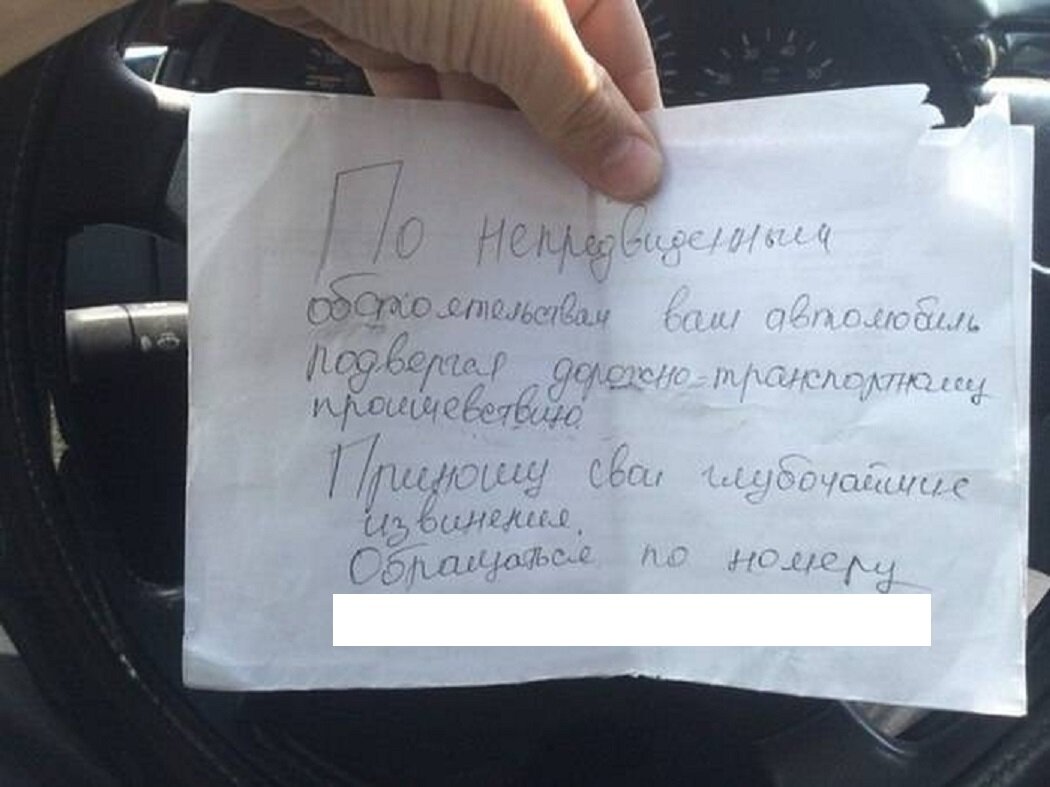 По непредвиденным
обстоятельствам ваш автомобиль
подвергся дорожно-транспортному
проишевствию.
Приношу свои глубочайшие
извинения.
Обращаться по номеру